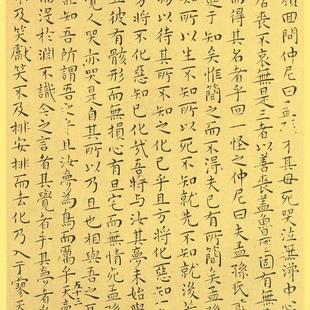 顏回問仲尼曰孟孫才其母死哭泣無涕中心
居喪不哀無是三者以善喪蓋魯國固有無
而得其名者乎回一怪之仲尼曰夫孟孫氏
於知矣惟簡之而不得夫已有所簡矣孟孫
不知所以生不知所以死不知就先不知就後
物以待其所不知之化已乎且方將化惡知不
方將不化惡知已化哉吾特與汝其夢未始覺
且彼有骸形而無損心有旦宅而無情死孟孫
覺人哭亦哭是自其所以乃且也相與吾之
詎知吾所謂吾之乎且汝夢為鳥而厲乎天夢
五十三
而沒於淵不識今之言者其覺者乎其夢者
不及笑獻笑不及排安排而去化乃入于寥天